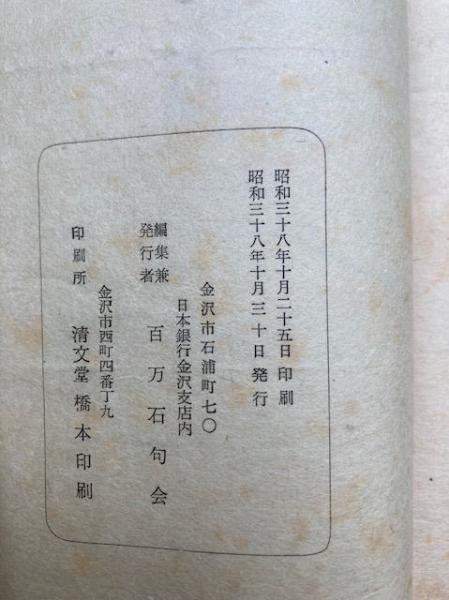 昭和三十八年十月二十五日 印刷
昭和三十八年十月三十日 発行
金沢市石浦町七〇
日本銀行金沢支店内
編集兼
発行者 百万石句会
金沢市西町四番丁九
印刷所 清文堂 橋本印刷